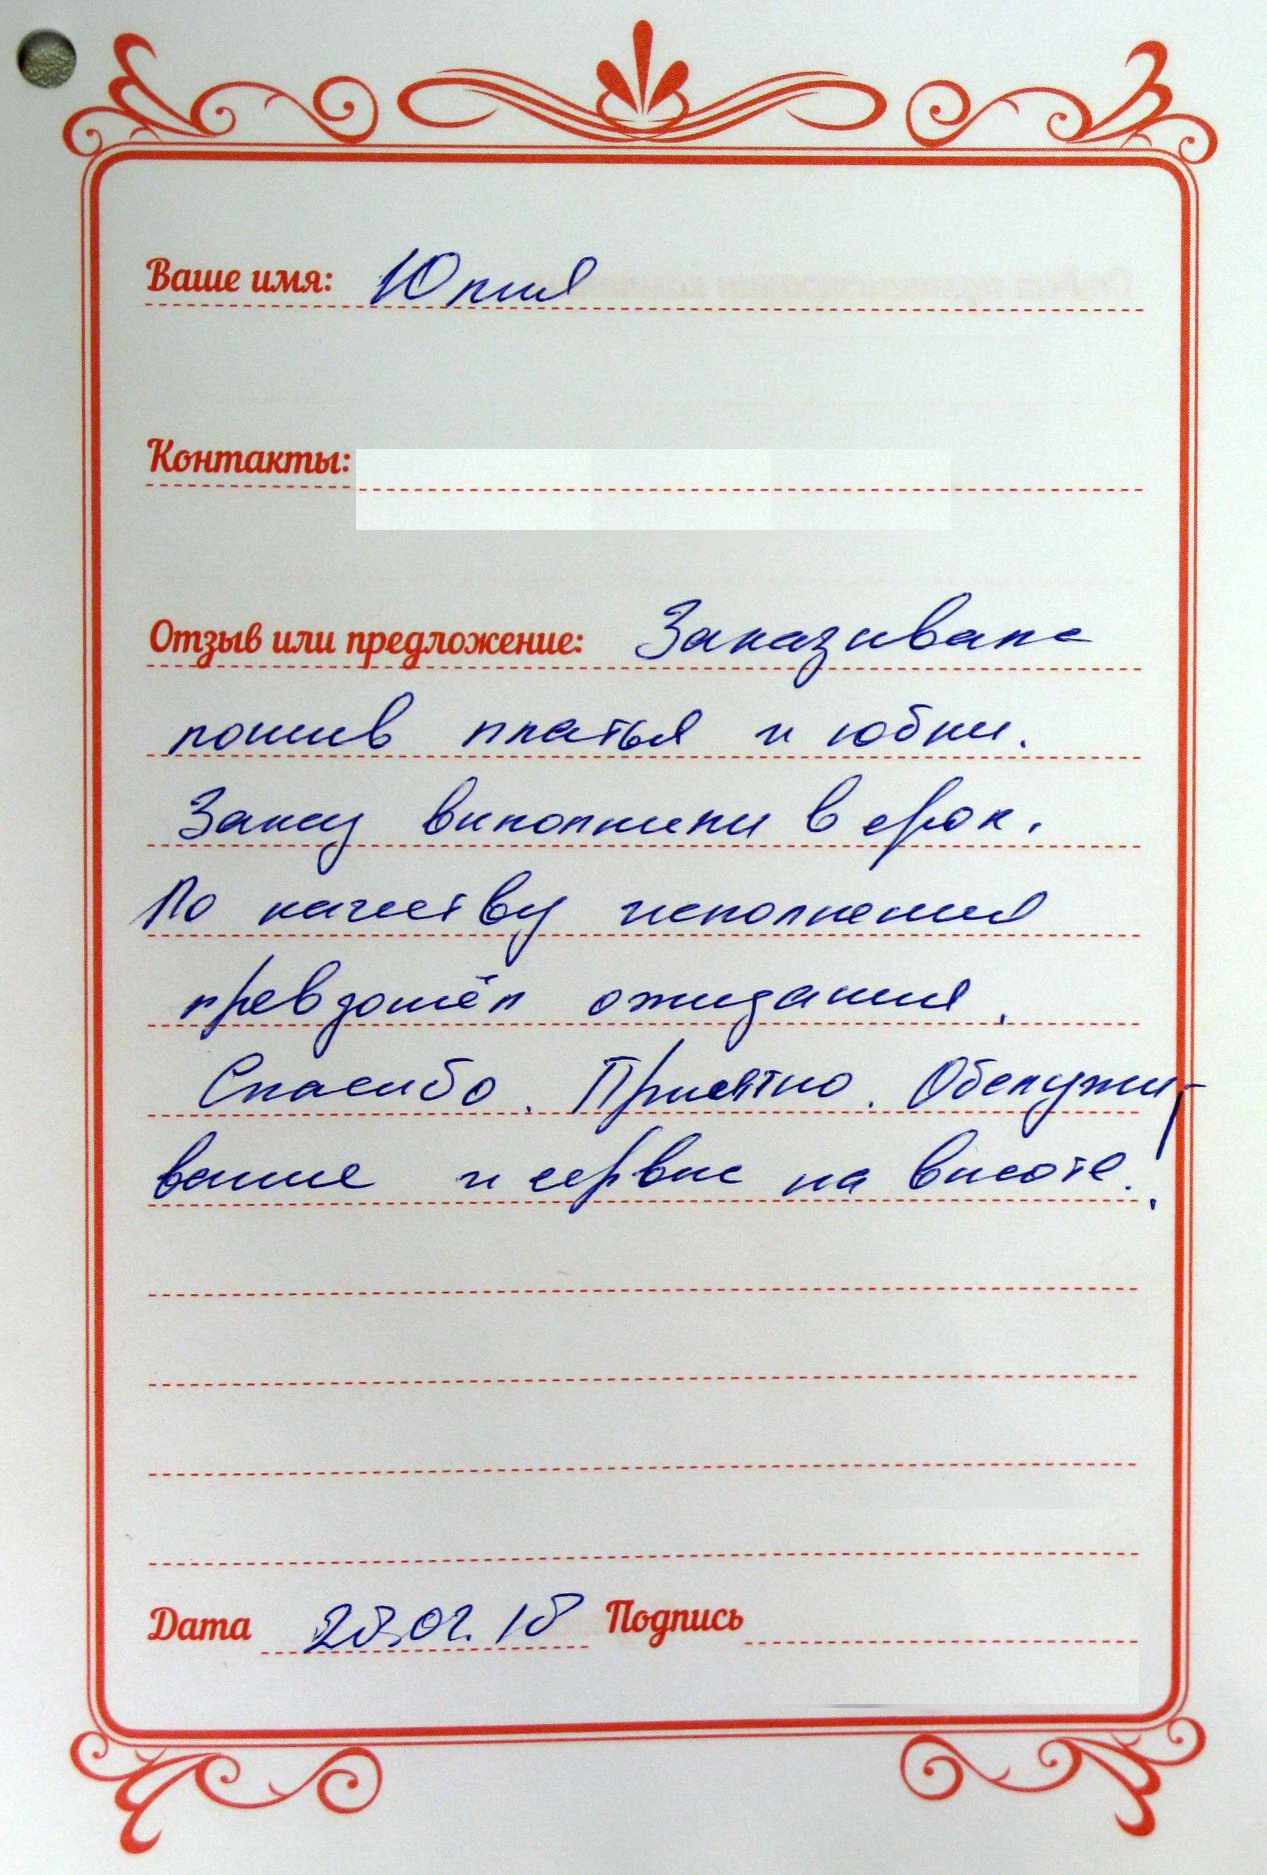 Ваше имя: Юлия
Контакты:
Отзыв или предложение: Заказывала
пошив платья и юбки.
Заказ выполнили в срок.
По качеству исполнения
превзошёл ожидания.
Спасибо. Приятно. Обслужи-
вание и сервис на высоте!
Дата 28.02.18 Подпись